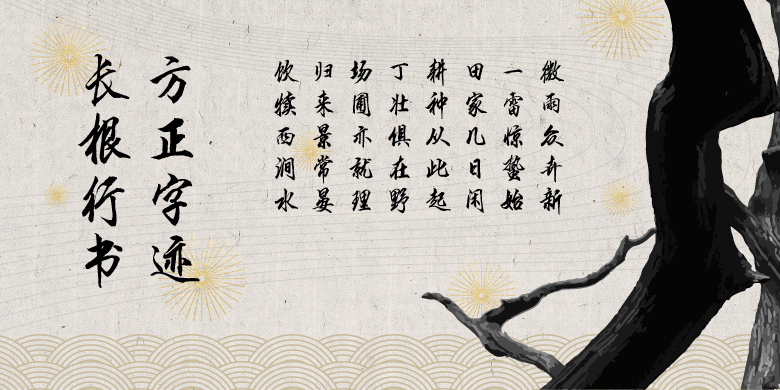 方正字迹
长根行书
微雨众卉新
一雷惊蛰始
田家几日闲
耕种从此起
丁壮俱在野
场圃亦就理
归来景常晏
饮犊西涧水